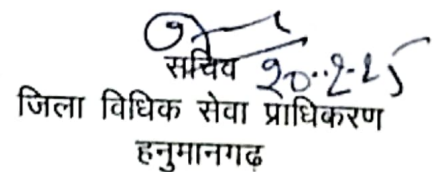 सचिव
जिला विधिक सेवा प्राधिकरण
हनुमानगढ़